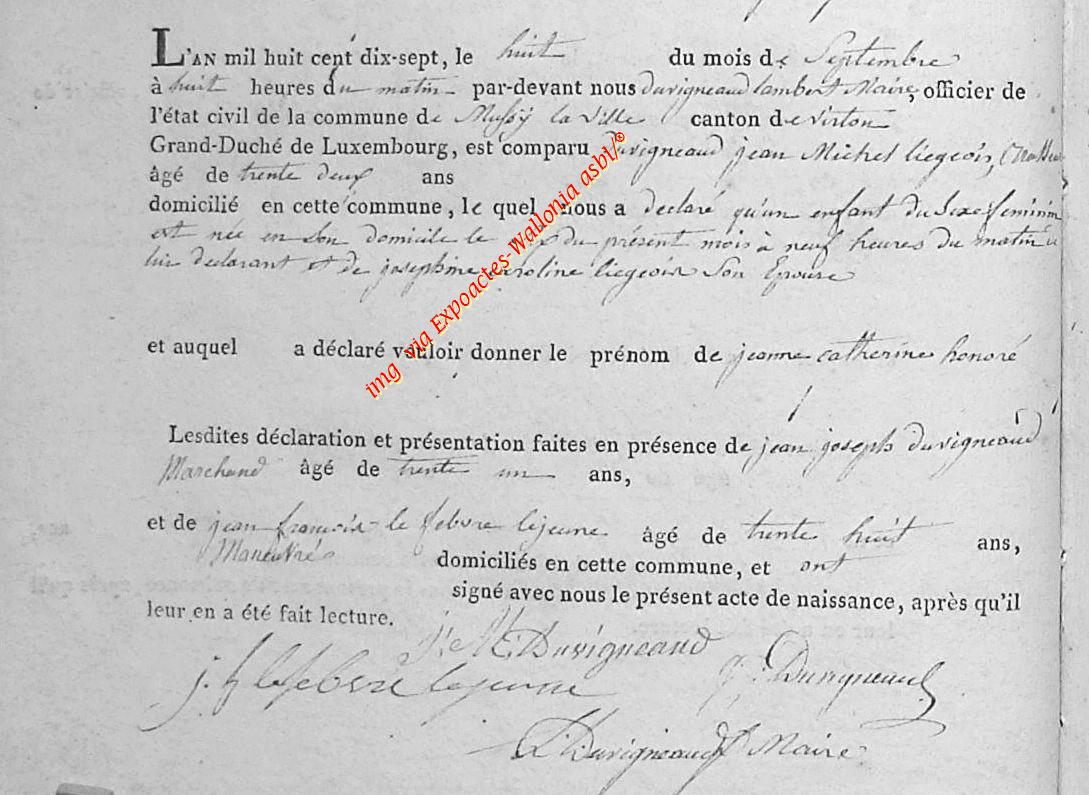 L'AN mil huit cent dix-sept, le huit du mois de Septembre
à huit heures du matin par-devant nous Duvigneaud Lambert Maire, officier de
l'état civil de la commune de Mussy la Ville canton de Virton
Grand-Duché de Luxembourg, est comparu Duvigneaud jean Michel liegeois,
âgé de trente deux ans
domicilié en cette commune, le quel nous a declaré qu'un enfant du Sexe feminin
est née en Son domicile le du présent mois à neuf heures du matin
lui declarant et de josephine caroline liegeois Son Epouse
et auquel a déclaré vouloir donner le prénom de jeanne catherine honoré
Lesdites déclaration et présentation faites en présence de jean joseph Duvigneaud
Marchand âgé de trente un ans,
et de jean francois le febvre lejeune âgé de trente huit ans,
domiciliés en cette commune, et ont
signé avec nous le présent acte de naissance, après qu'il
leur en a été fait lecture.
J. M. Duvigneaud
j. f lefebvre lejeune J. J. Duvigneaud
L. Duvigneaud Maire
img via Expoactes-Wallonia asbl/®